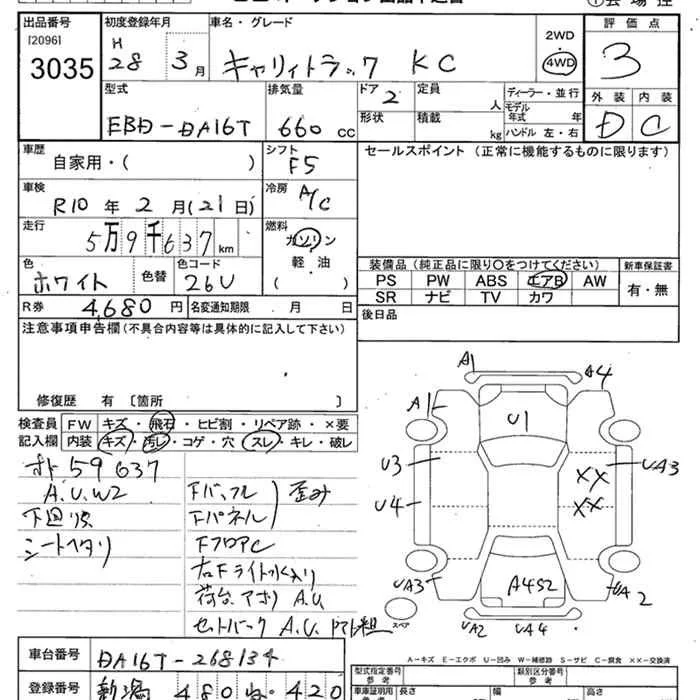 出品番号 初度登録年月 車名・グレード 評価点
[2096] H 2WD
3035 28 3月 キャリイトラック KC 4WD 3
型式 排気量 ドア 2 定員 人 ディーラー・並行 外装 内装
EBD-DA16T 660 cc 形状 積載 kg モデル年式 年 D C
ハンドル 左・右
車歴 シフト セールスポイント (正常に機能するものに限ります)
自家用・( ) F5
車検 冷房
R10 年 2 月(21日) A/C
走行 燃料
5万9千637km ガソリン
軽・油
色 色替 カラーコード ( ) 装備品 (純正品に限り○をつけてください) 新車保証書
ホワイト 26U PS PW ABS エアB AW 有・無
R券 4,680円 名変通知期限 月 日 SR ナビ TV カワ
注意事項申告欄(不具合内容等は具体的に記入して下さい) 後日品
修復歴 有〔箇所 〕
検査員 FW キズ・飛石・ヒビ割・リペア跡・×要
記入欄 内装 キズ・汚レ・コゲ・穴・スレ・キレ・破レ
オド59637
A.U.W2 Fバックル
下廻り Fパネル 歪み
シートヘタリ FフロアC
右Fライト水入り
荷台、アオリ A.U
セットバック A.U
A1 A4
A1 U1
U3 XX UA3
U4 XX
UA3 A4S2 UA2
スペア UA2 UA4
A-キズ E-エクボ U-凹み W-補修跡 S-サビ C-腐食 ××-交換済
車台番号 DA16T-268134 型式指定番号 参考 類別区分番号 参考
登録番号 新潟 480 420 車庫証明用 長さ 幅 高さ